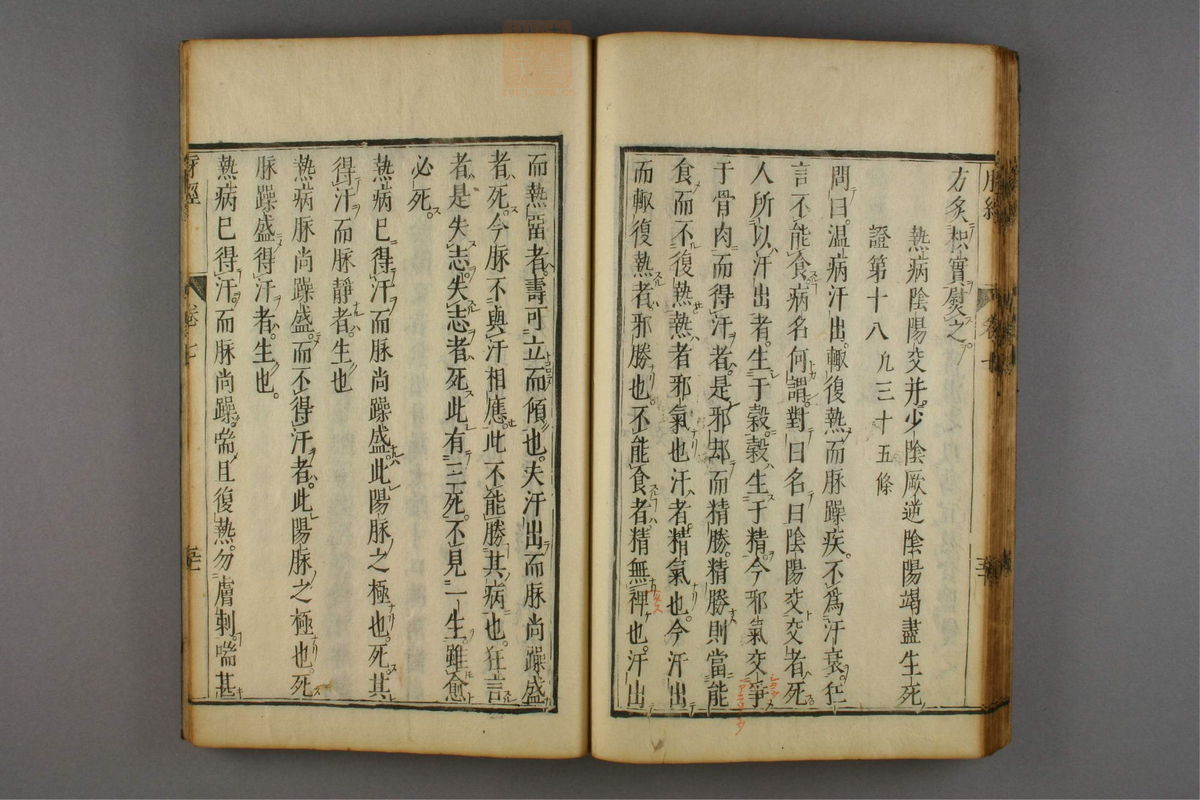 方炙枳實熨之
熱病陰陽交并少陰厥逆陰陽竭盡生死
證第十八 凡三十五條
問曰温病汗出輒復熱而脉躁疾不爲汗衰狂
言不能食病名何謂對曰名曰陰陽交交者死
人所以汗出者生于穀穀生于精今邪氣交爭
于骨肉而得汗者是邪却而精勝精勝則當能
食而不復熱熱者邪氣也汗者精氣也今汗出
而輒復熱者邪勝也不能食者精無裨也汗出
而熱畱者壽可立而傾也夫汗出而脉尚躁盛
者死今脉不與汗相應此不能勝其病也狂言
者是失志失志者死此有三死不見一生雖愈
必死
熱病已得汗而脉尚躁盛此陽脉之極也死其
得汗而脉靜者生也
熱病脉尚躁盛而不得汗者此陽脉之極也死
脉躁盛得汗者生也
熱病已得汗而脉尚躁喘且復熱勿膚刺喘甚
卷七